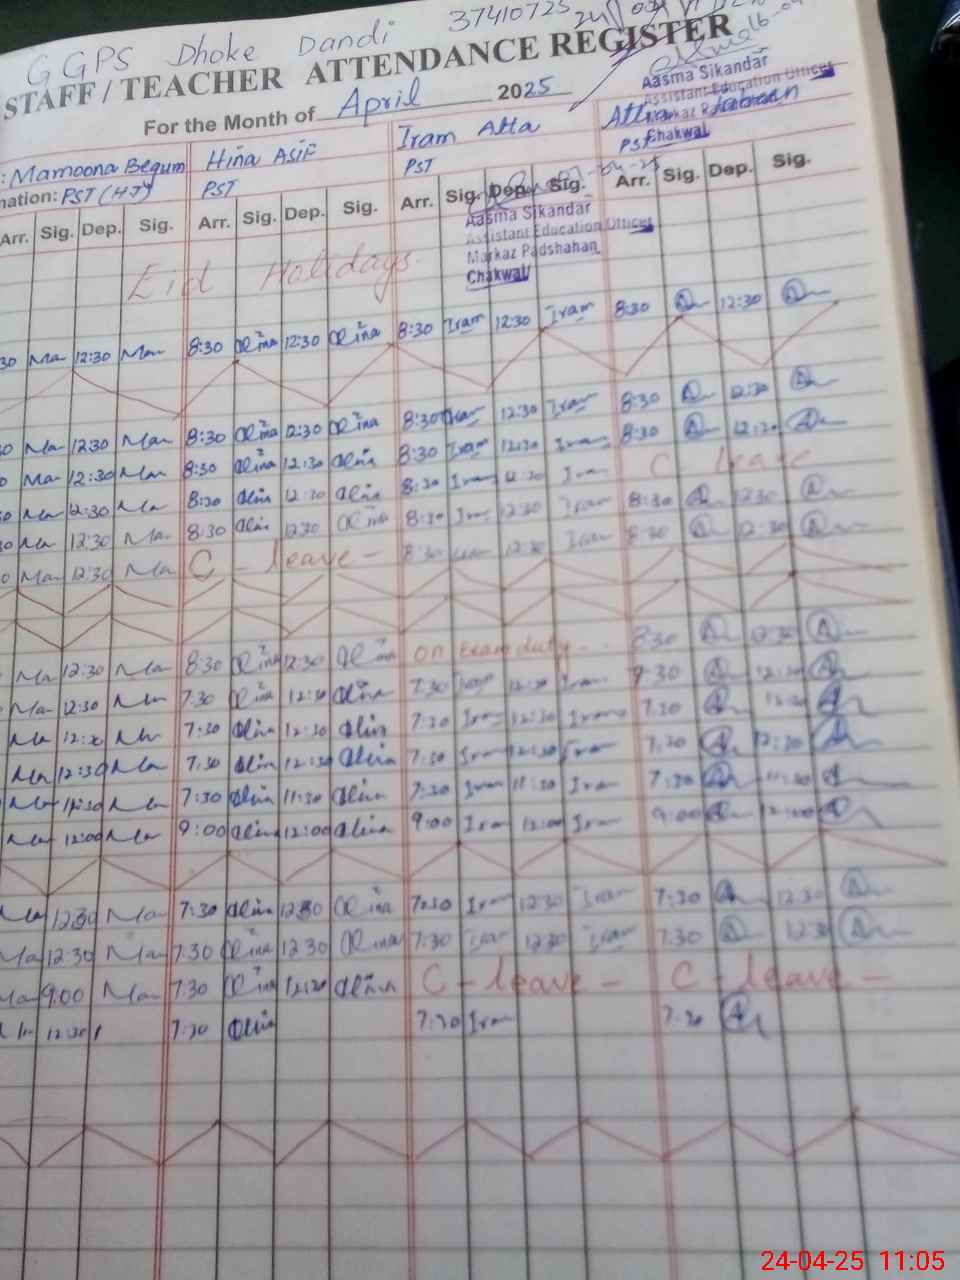 GGPS Dhoke Dandi 37410725
STAFF / TEACHER ATTENDANCE REGISTER
For the Month of April 2025
Aasma Sikandar
Assistant Education Officer
Chakwal
: Mamoona Begum Hina Asif Iram Atta
nation: PST (HT) PST PST PST
Arr. Sig. Dep. Sig. Arr. Sig. Dep. Sig. Arr. Sig. Dep. Sig. Arr. Sig. Dep. Sig.
Aasma Sikandar
Assistant Education Officer
Markaz Padshahan
Chakwal
Eid Holidays.
30 Ma 12:30 Ma 8:30 Hina 12:30 Hina 8:30 Iram 12:30 Iram 8:30 12:30
Ma 12:30 Ma 8:30 Hina 12:30 Hina 8:30 Iram 12:30 Iram 8:30 12:30
Ma 12:30 Ma 8:30 Hina 12:30 Hina 8:30 Iram 12:30 Iram 8:30 12:30
Ma 12:30 Ma 8:30 Hina 12:30 Hina 8:30 Iram 12:30 Iram C leave
Ma 12:30 Ma 8:30 Hina 12:30 Hina 8:30 Iram 12:30 Iram 8:30 12:30
Ma 12:30 Ma C - leave - 8:30 Iram 12:30 Iram 8:30 12:30
Ma 12:30 Ma 8:30 Hina 12:30 Hina on exam duty 8:30 12:30
Ma 12:30 Ma 7:30 Hina 12:30 Hina 7:30 Iram 12:30 Iram 7:30 12:30
Ma 12:30 Ma 7:30 Hina 12:30 Hina 7:30 Iram 12:30 Iram 7:30
Ma 12:30 Ma 7:30 Hina 12:30 Hina 7:30 Iram 12:30 Iram 7:30 12:30
Ma 11:30 Ma 7:30 Hina 11:30 Hina 7:30 Iram 11:30 Iram 7:30 11:30
Ma 12:00 Ma 9:00 Hina 12:00 Hina 9:00 Iram 12:00 Iram 9:00 12:00
Ma 12:30 Ma 7:30 Hina 12:30 Hina 7:30 Iram 12:30 Iram 7:30 12:30
Ma 12:30 Ma 7:30 Hina 12:30 Hina 7:30 Iram 12:30 Iram 7:30 12:30
Ma 9:00 Ma 7:30 Hina 12:30 Hina C - leave - C - leave -
12:30 7:30 Hina 7:30 Iram 7:30
24-04-25 11:05